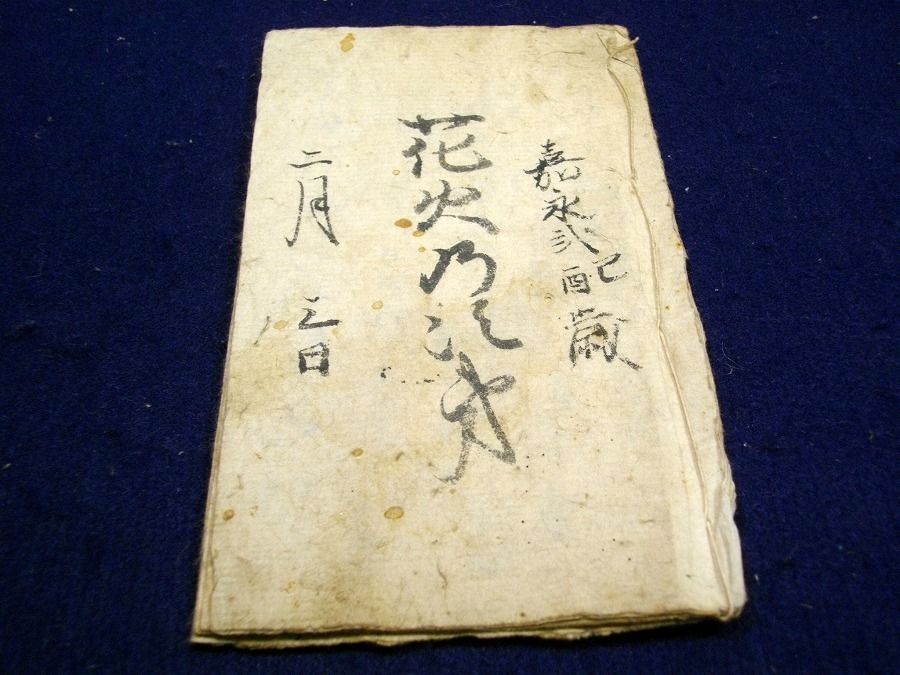 嘉永弐己酉歳
花火乃次第
二月 三日